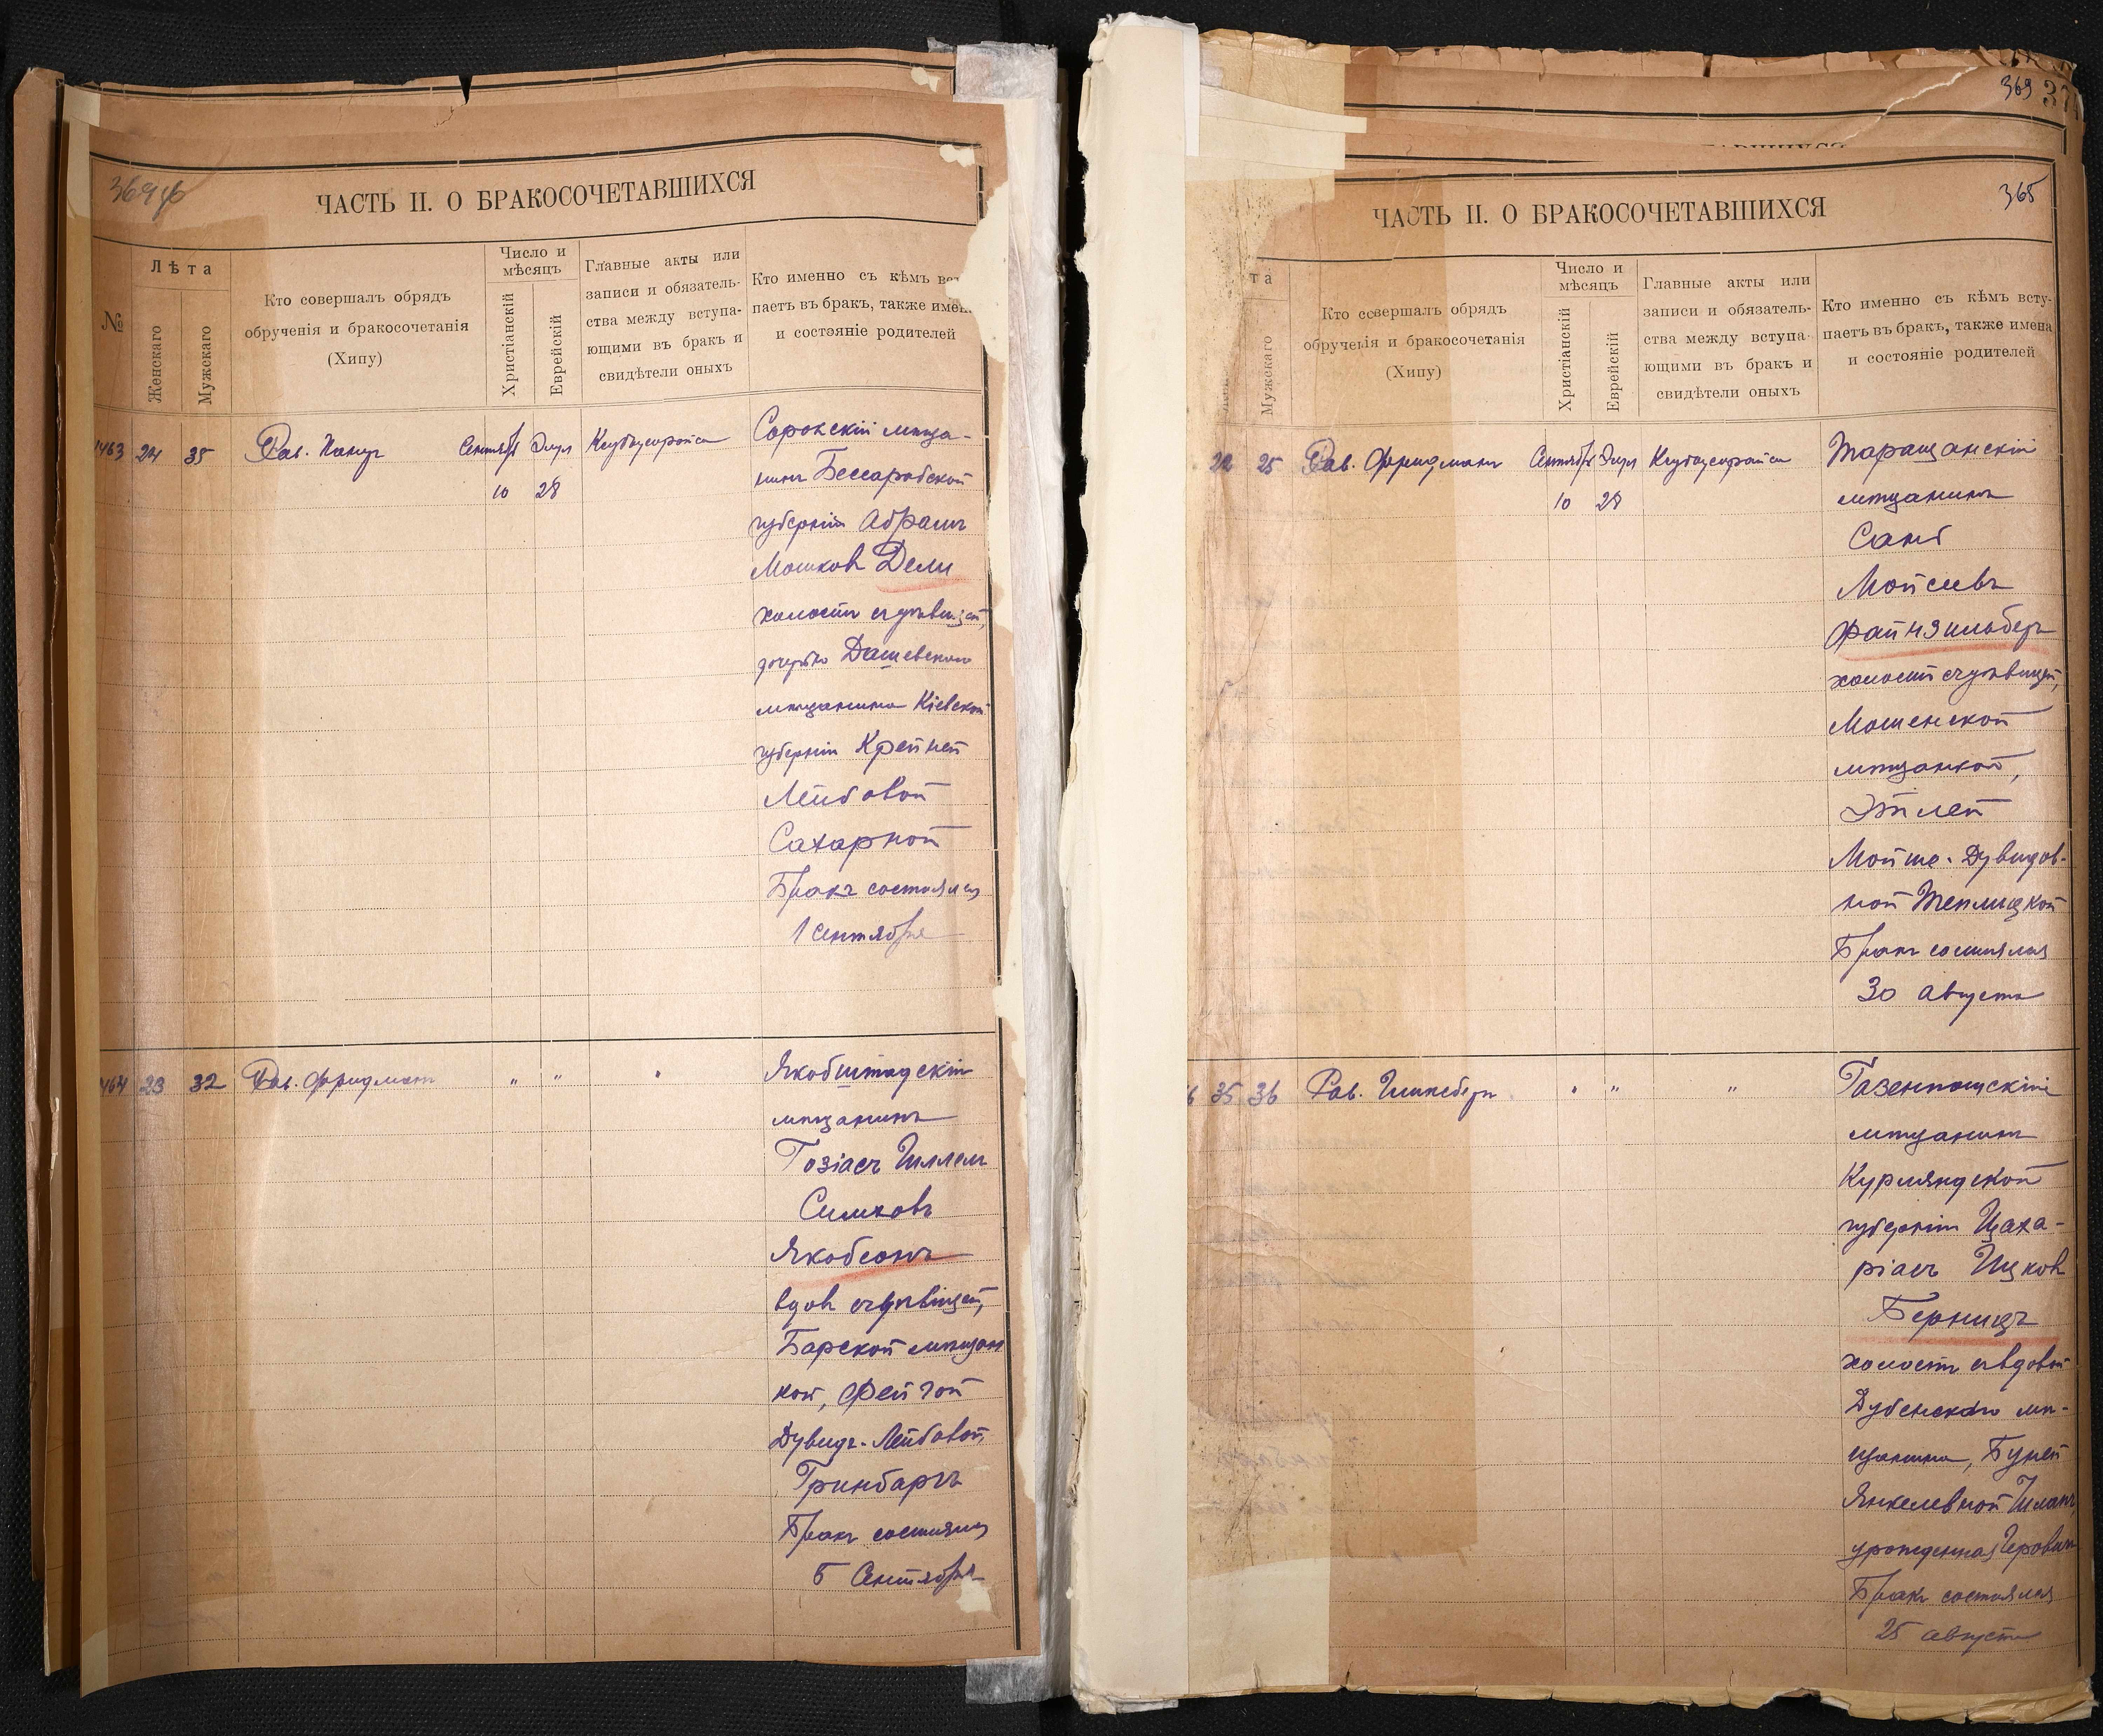 364об
ЧАСТЬ II. О БРАКОСОЧЕТАВШИХСЯ
№
Лѣта
Женскаго
Мужскаго
Кто совершалъ обрядъ
обрученія и бракосочетанія
(Хипу)
Число и
мѣсяцъ
Христіанскій
Еврейскій
Главные акты или
записи и обязатель-
ства между вступа-
ющими въ бракъ и
свидѣтели оныхъ
Кто именно съ кѣмъ
паетъ въ бракъ, также
и состояніе родителей
1463 24 35 Рав. Сентябр Элул
10 28
Сорокскій мѣща-
нинъ Бессарабской
губерніи Абрамъ
Мошков Дели
холостъ съ дѣвицей,
дочерью Дашевскаго
мѣщанина Кіевской
губерніи Крейней
Лейбовой
Сахарной
Бракъ состоялся
1 Сентября
464 23 32 Рав. Фридманъ " " "
Якобштадскій
мѣщанинъ
Симковъ
Якобсонъ
вдов съ дѣвицей,
Барской мѣщан
кой, Фейгой
Дувидъ-Лейбовой,
Гринбаргъ
Бракъ состоялся
5 Сентября
369
37
365
ЧАСТЬ II. О БРАКОСОЧЕТАВШИХСЯ
та
Мужскаго
Кто совершалъ обрядъ
обрученія и бракосочетанія
(Хипу)
Число и
мѣсяцъ
Христіанскій
Еврейскій
Главные акты или
записи и обязатель-
ства между вступа-
ющими въ бракъ и
свидѣтели оныхъ
Кто именно съ кѣмъ всту-
паетъ въ бракъ, также имена
и состояніе родителей
22 25 Рав. Фридманъ Сентябр Элул
10 28
Таращанскій
мѣщанинъ
Мойсеевъ
Файнзильберъ
холостъ съ дѣвицей,
Мошенской
мѣщанкой,
Этлей
Мойше-Дувидов-
ной Теплицкой
Бракъ состоялся
30 августа
6 35 36 Рав. Гинсбергъ " " "
Газенпотскій
мѣщанинъ
Курляндской
губерніи Цаха-
ріасъ Ицков
Берницъ
холостъ съ вдовой
Дубенскаго мѣ-
щанина, Буней
Янкелевной
Бракъ состоялся
25 августа